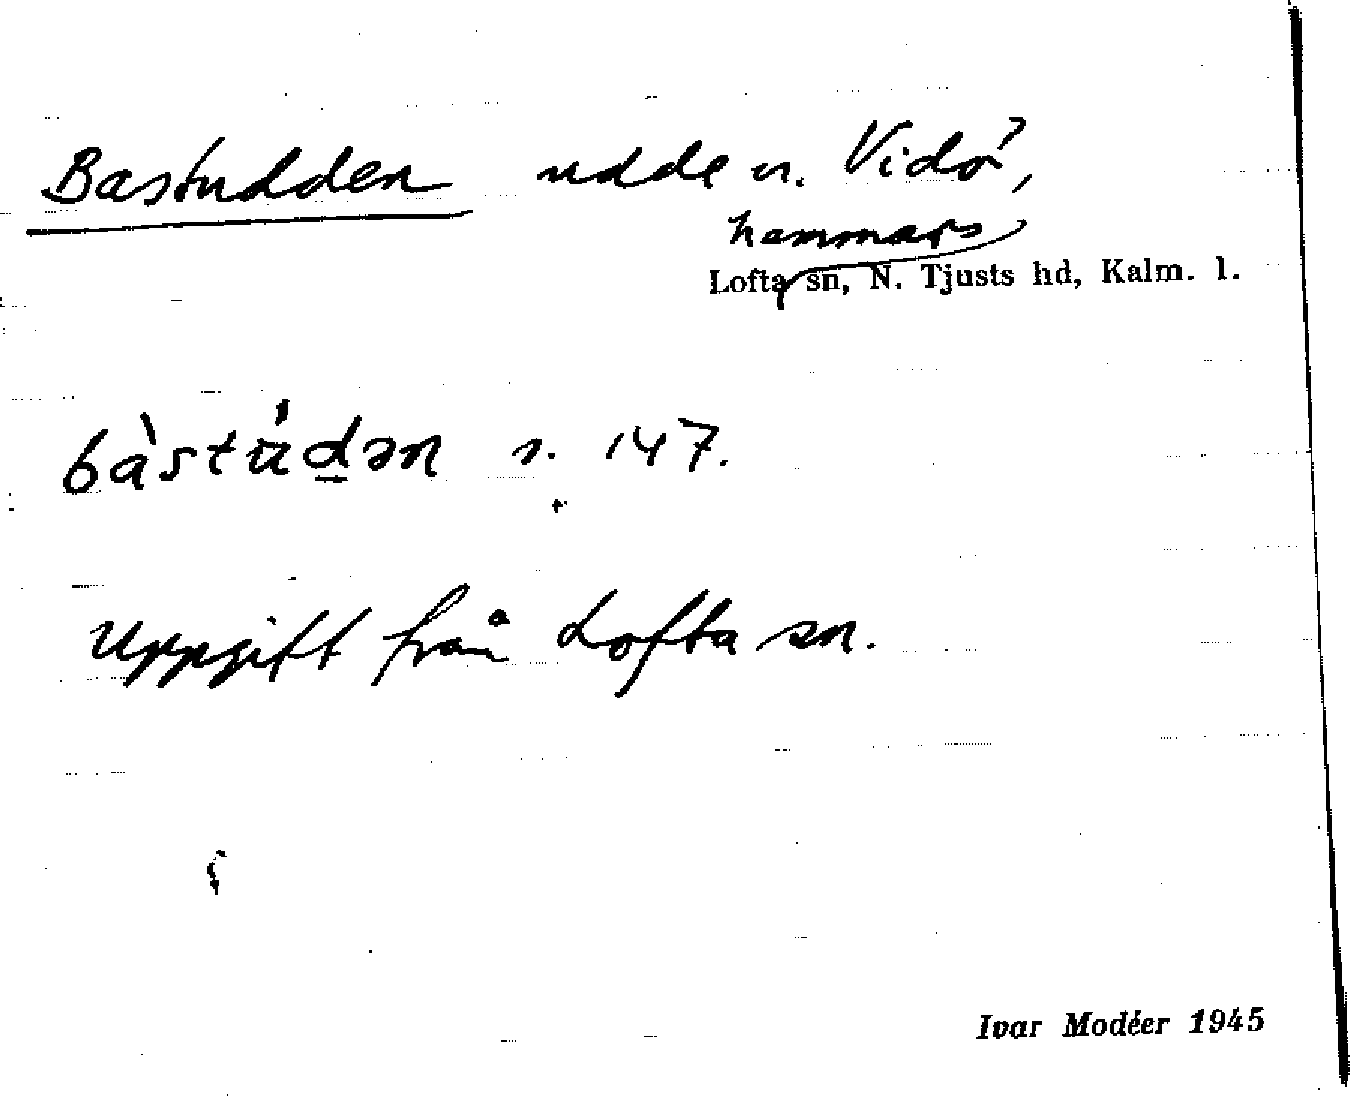 Bastudden udde n. Vidö,
hammars
Lofta sn, N. Tjusts hd, Kalm. l.
bàstúdən s. 147.
Uppgift från Lofta sn.
Ivar Modéer 1945